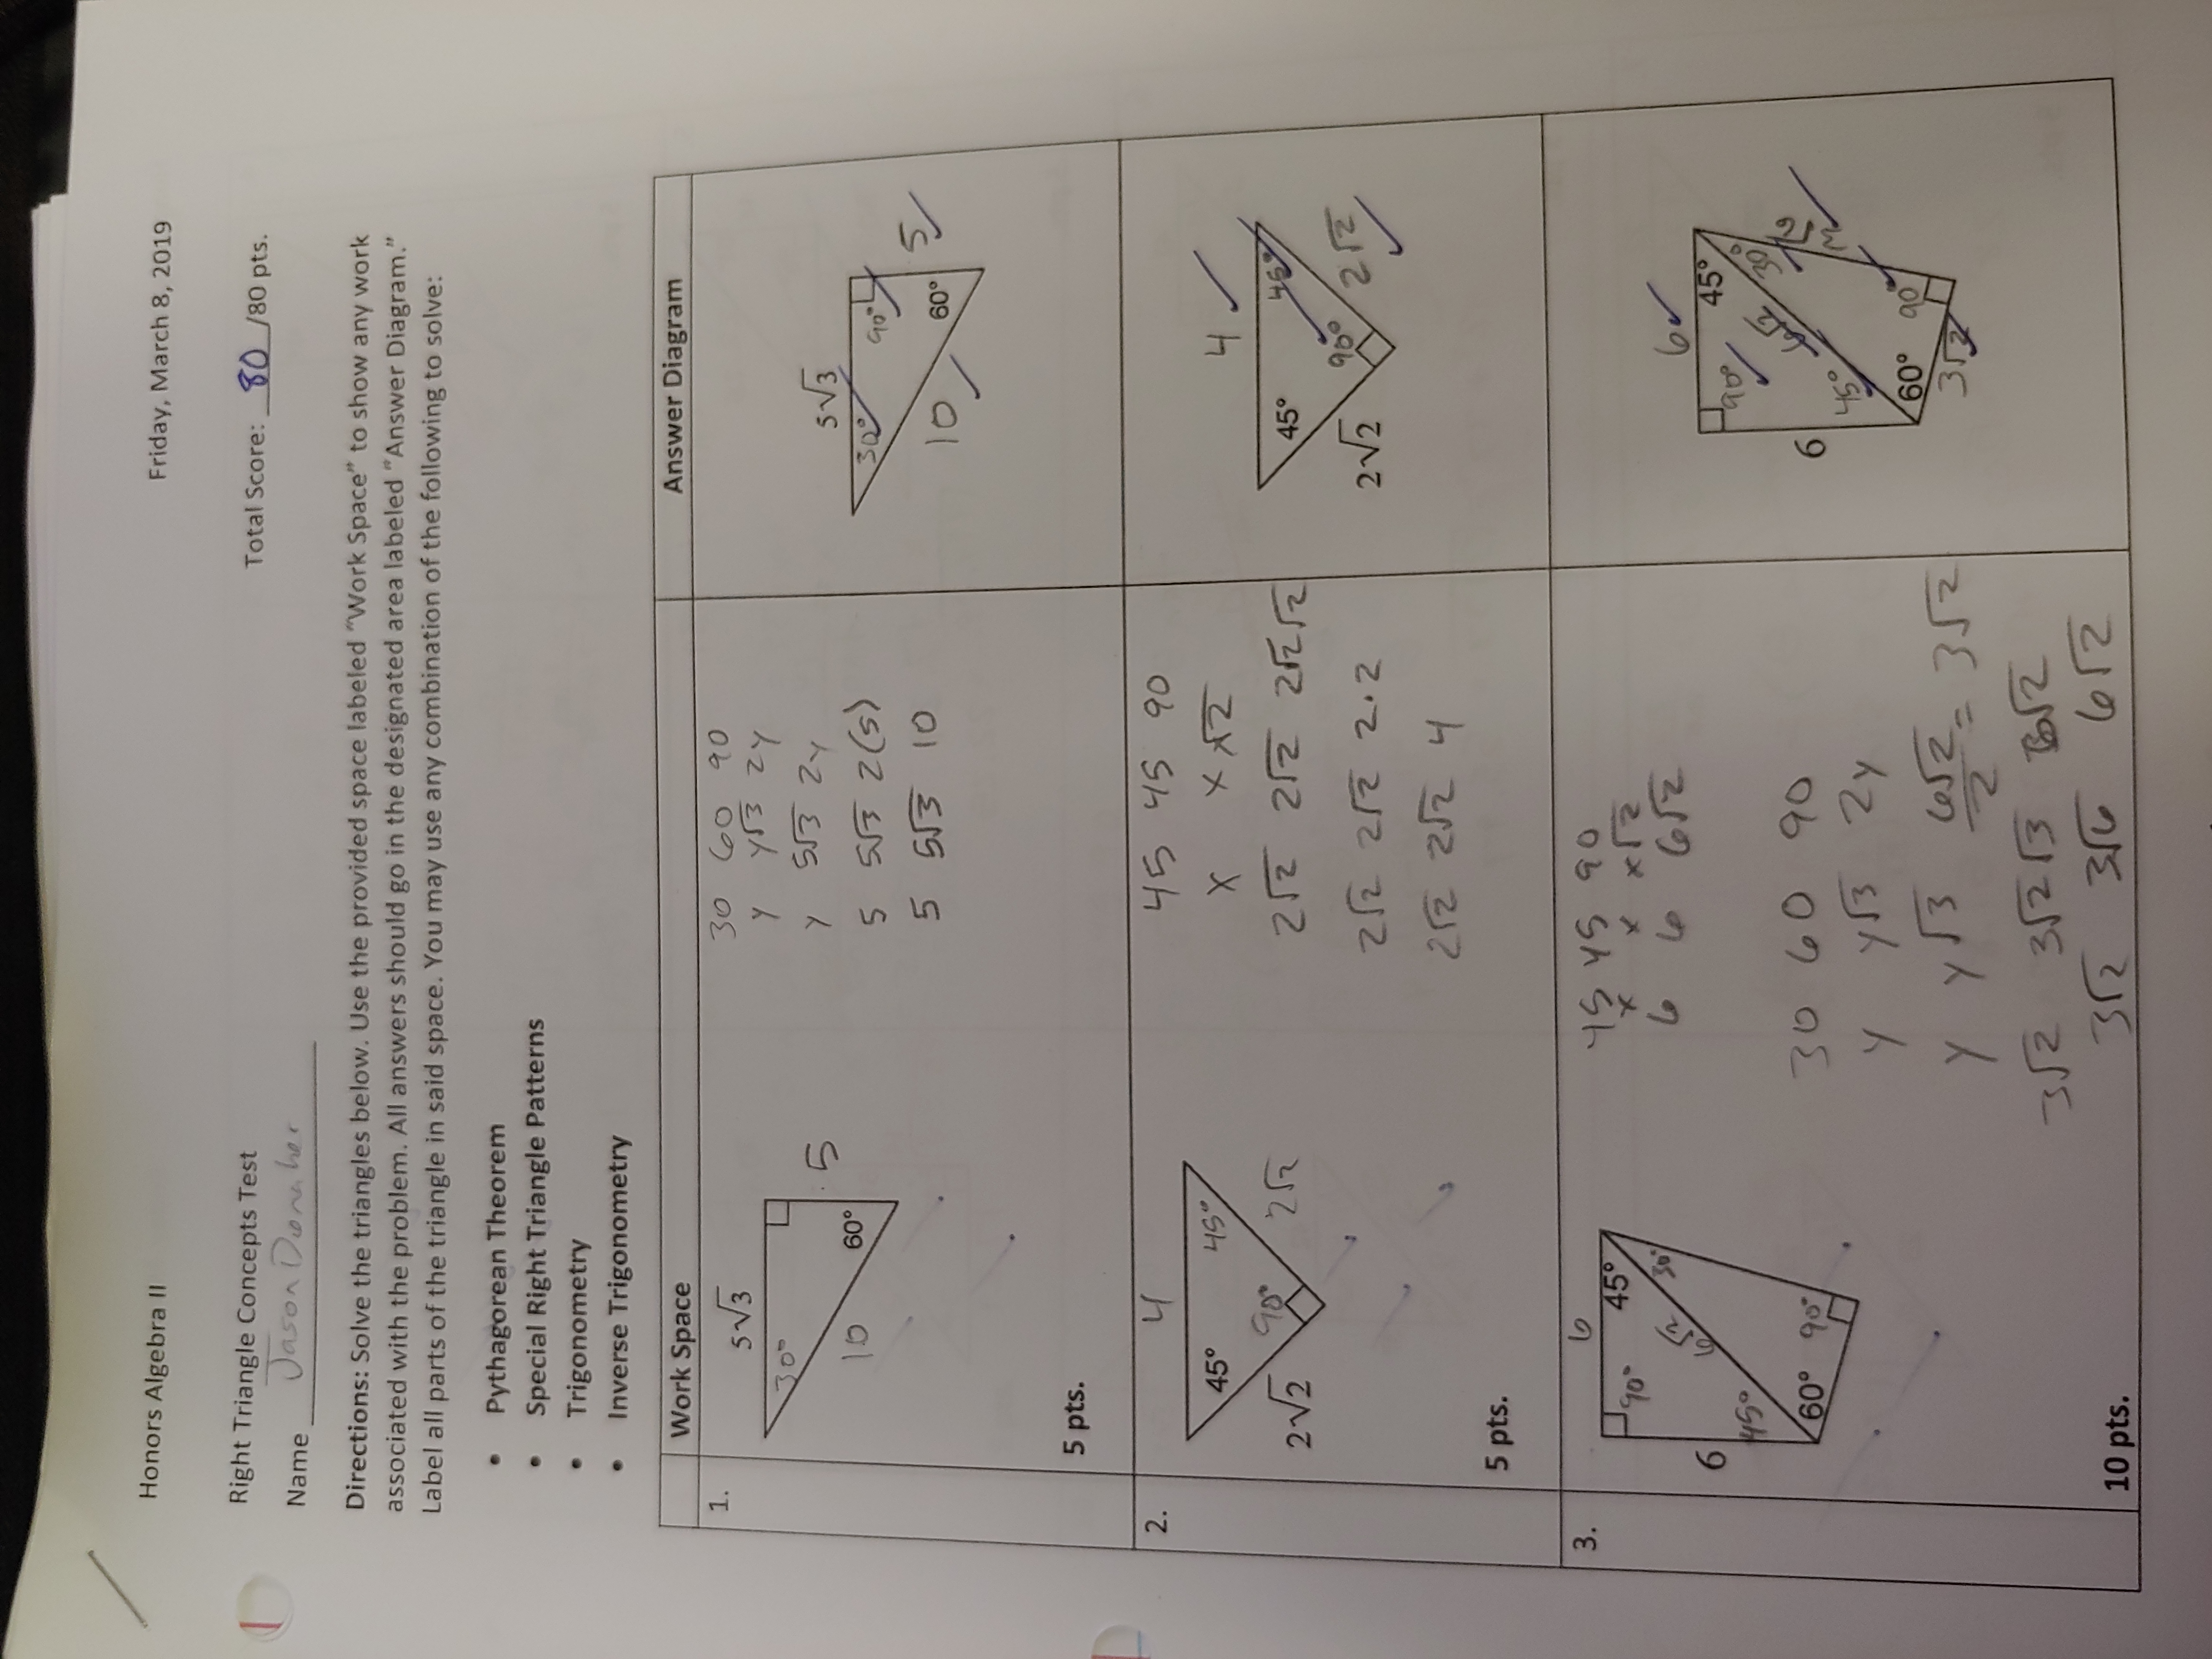 Honors Algebra II
Friday, March 8, 2019
Right Triangle Concepts Test
Total Score: 80 /80 pts.
Name Jason Donaher
Directions: Solve the triangles below. Use the provided space labeled "Work Space" to show any work
associated with the problem. All answers should go in the designated area labeled "Answer Diagram."
Label all parts of the triangle in said space. You may use any combination of the following to solve:
• Pythagorean Theorem
• Special Right Triangle Patterns
• Trigonometry
• Inverse Trigonometry
Work Space
Answer Diagram
1.
5√3
30°
5
10
60°
30 60 90
y y√3 2y
y 5√3 2y
5 5√3 2(5)
5 5√3 10
5√3
30° 90°
5
10
60°
5 pts.
2.
4
45° 45°
90°
2√2 2√2
45 45 90
x x x√2
2√2 2√2 2√2√2
2√2 2√2 2·2
2√2 2√2 4
4
45° 45°
90°
2√2 2√2
5 pts.
3.
6
90° 45°
30°
6√2
6
45°
60° 90°
45 45 90
x x x√2
6 6 6√2
30 60 90
y y√3 2y
y y√3 6√2/2 = 3√2
3√2 3√2√3 6√2
3√2 3√6 6√2
6
90° 45°
30°
6√2
3√6
6
45°
60° 90°
3√2
10 pts.